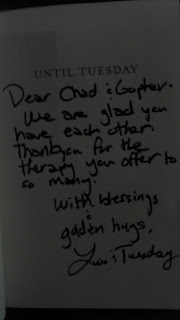 UNTIL TUESDAY
Dear Chad & Gopher.
We are glad you
have each other.
Thankyou for the
therapy you offer to
so many.
With blessings
&
golden hugs,
& Tuesday